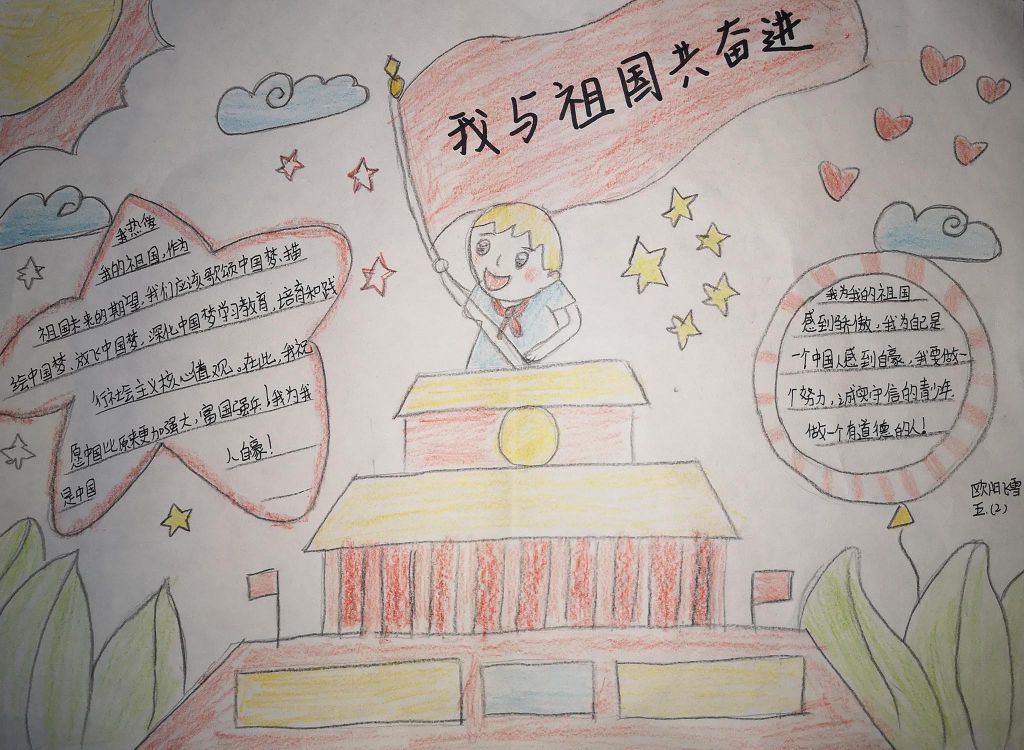 我与祖国共奋进
我热爱
我的祖国,作为
祖国未来的期望,我们应该歌颂中国梦、描
绘中国梦、放飞中国梦,深化中国梦学习教育,培育和践
行社会主义核心值观。在此,我祝
愿中国比原来更加强大,富国强兵!我为我
是中国
人自豪!
我为我的祖国
感到骄傲,我为自己是
一个中国人感到自豪,我要做一
个努力,诚实守信的青少年.
做一个有道德的人!
欧阳飞雪
五.(2)